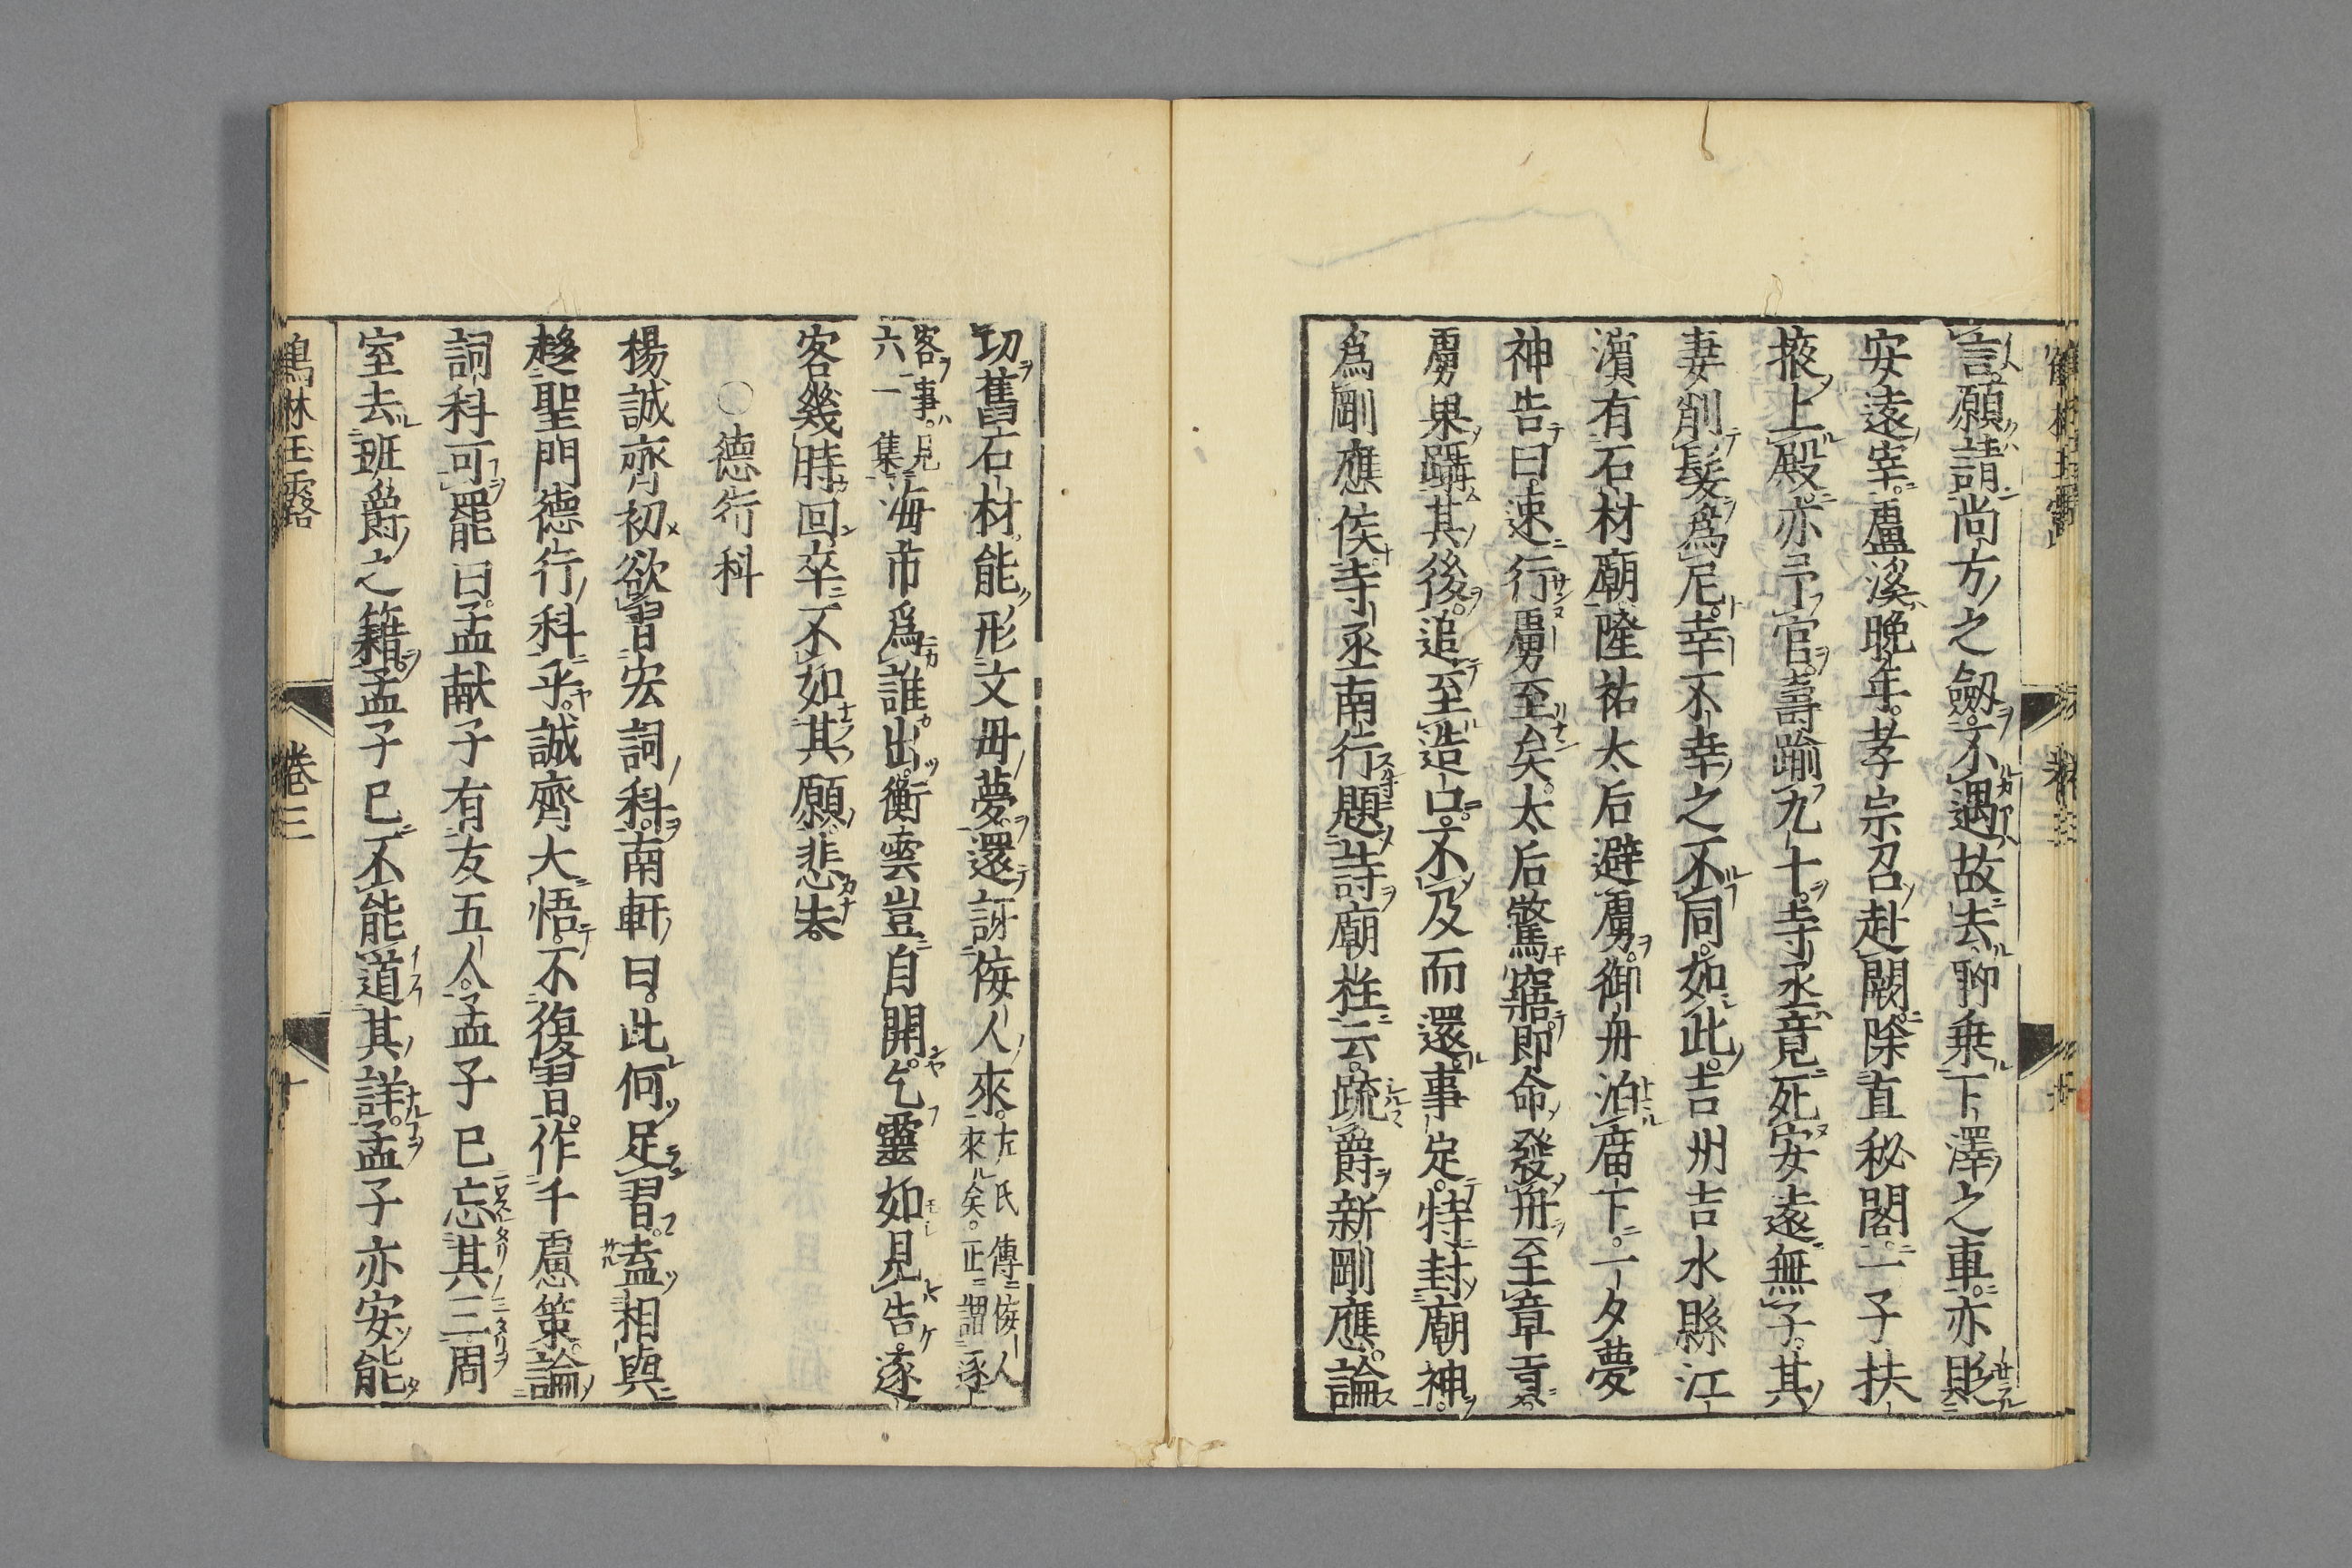 言願請尚方之劔不遇故去聊乗下澤之車亦貶
安遠宰盧溪晚年孝宗召赴闕除直秘閣一子扶
掖上殿亦予官壽踰九十寺丞竟死安遠無子其
妻削髮爲尼幸不幸之不同如此吉州吉水縣江
濵有石材廟隆祐太后避虜御舟泊庙下一夕夢
神告曰速行虜至矣太后驚寤即命發舟至章貢
虜果躡其後追至造口不及而還事定特封廟神
爲剛應侯寺丞南行題詩廟柱云疏爵新剛應論
切舊石材能形文毋夢還訝侯人來左氏傳侯人來矣正謂逐
客事見六一集海市爲誰出衡雲豈自開乞靈如見告逐
客幾時回卒不如其願悲夫
○德行科
楊誠齊初欲習宏詞科南軒曰此何足習盍相與
趍聖門德行科乎誠齊大悟不復習作千慮策論
詞科可罷曰孟献子有友五人孟子已忘其三周
室去班爵之籍孟子已不能道其詳孟子亦安能
鶴林玉露 卷三 十